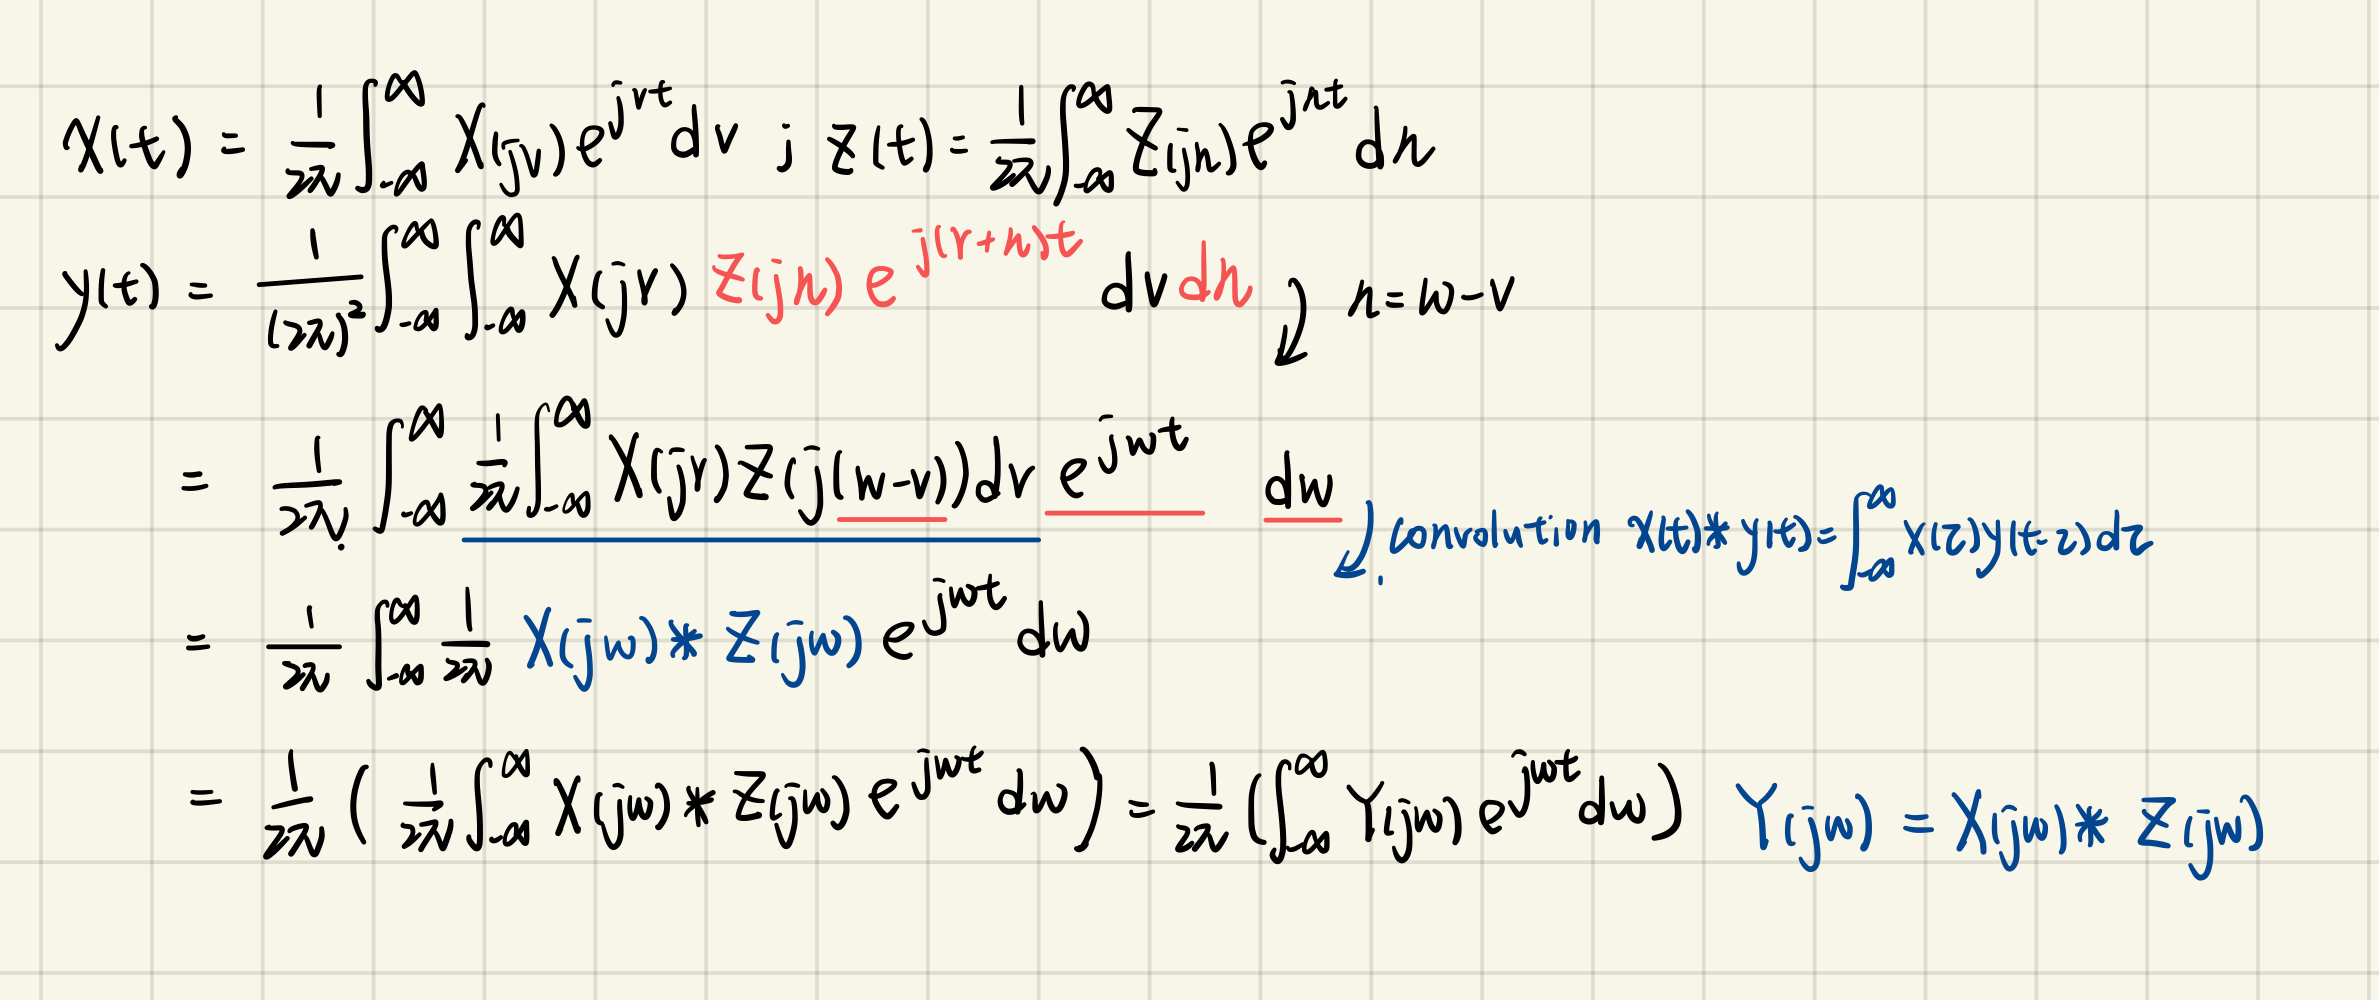 x(t) = 1/2π ∫_{-∞}^{∞} X(jv) e^{jvt} dv ; z(t) = 1/2π ∫_{-∞}^{∞} Z(jn) e^{jnt} dn
y(t) = 1/(2π)² ∫_{-∞}^{∞} ∫_{-∞}^{∞} X(jv) Z(jn) e^{j(v+n)t} dv dn n = w-v
= 1/2π ∫_{-∞}^{∞} 1/2π ∫_{-∞}^{∞} X(jv) Z(j(w-v)) dv e^{jwt} dw
convolution x(t) * y(t) = ∫_{-∞}^{∞} x(τ) y(t-τ) dτ
= 1/2π ∫_{-∞}^{∞} 1/2π X(jw) * Z(jw) e^{jwt} dw
= 1/2π ( 1/2π ∫_{-∞}^{∞} X(jw) * Z(jw) e^{jwt} dw ) = 1/2π ( ∫_{-∞}^{∞} Y(jw) e^{jwt} dw ) Y(jw) = X(jw) * Z(jw)